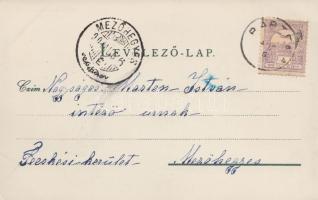 MEZŐHEGYES
LEVELEZŐ-LAP.
Czim Nagyságos Marton István
intéző urnak
Pécskési kerület Mezőhegyes